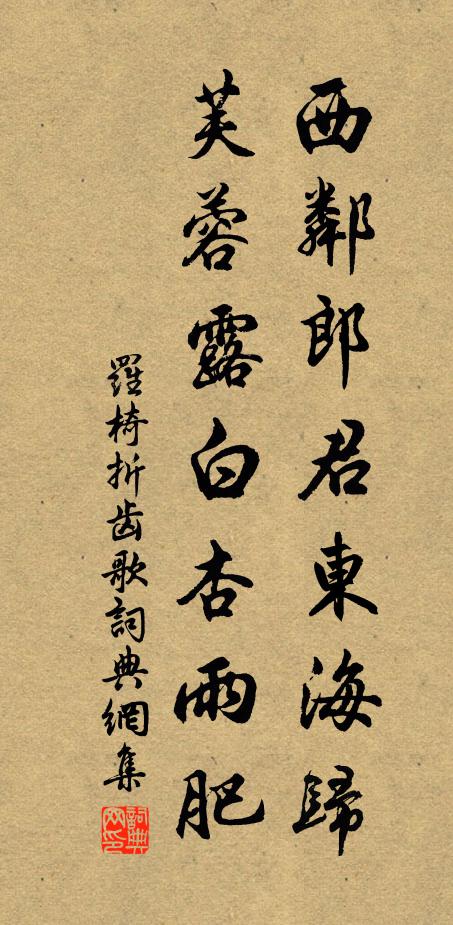 西鄰郎君東海歸
芙蓉露白杏雨肥
羅椅折齒歌詞典網集
詞典網印